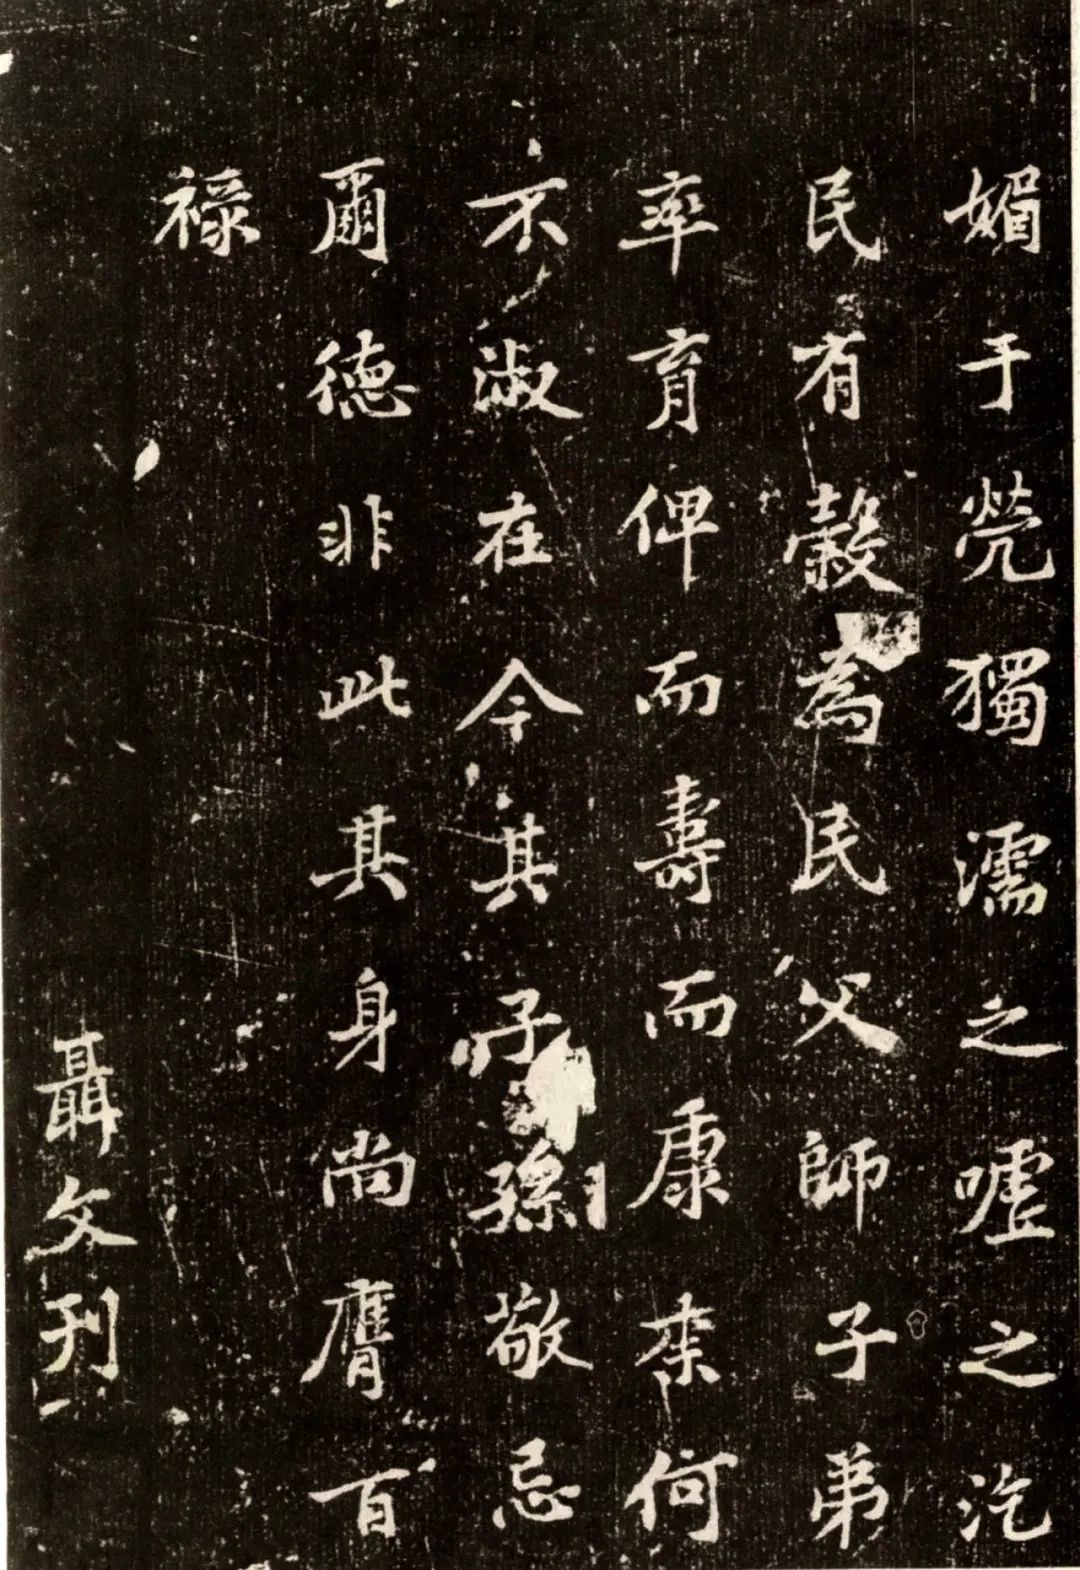 媚于煢獨濡之噓之汔
民有穀為民父師子弟
率育俾而壽而康柰何
不淑在今其子孫敬忌
爾德非此其身尚膺百
祿
聶文刊